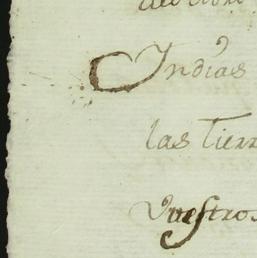 Indias
las Tierr
Vuestros